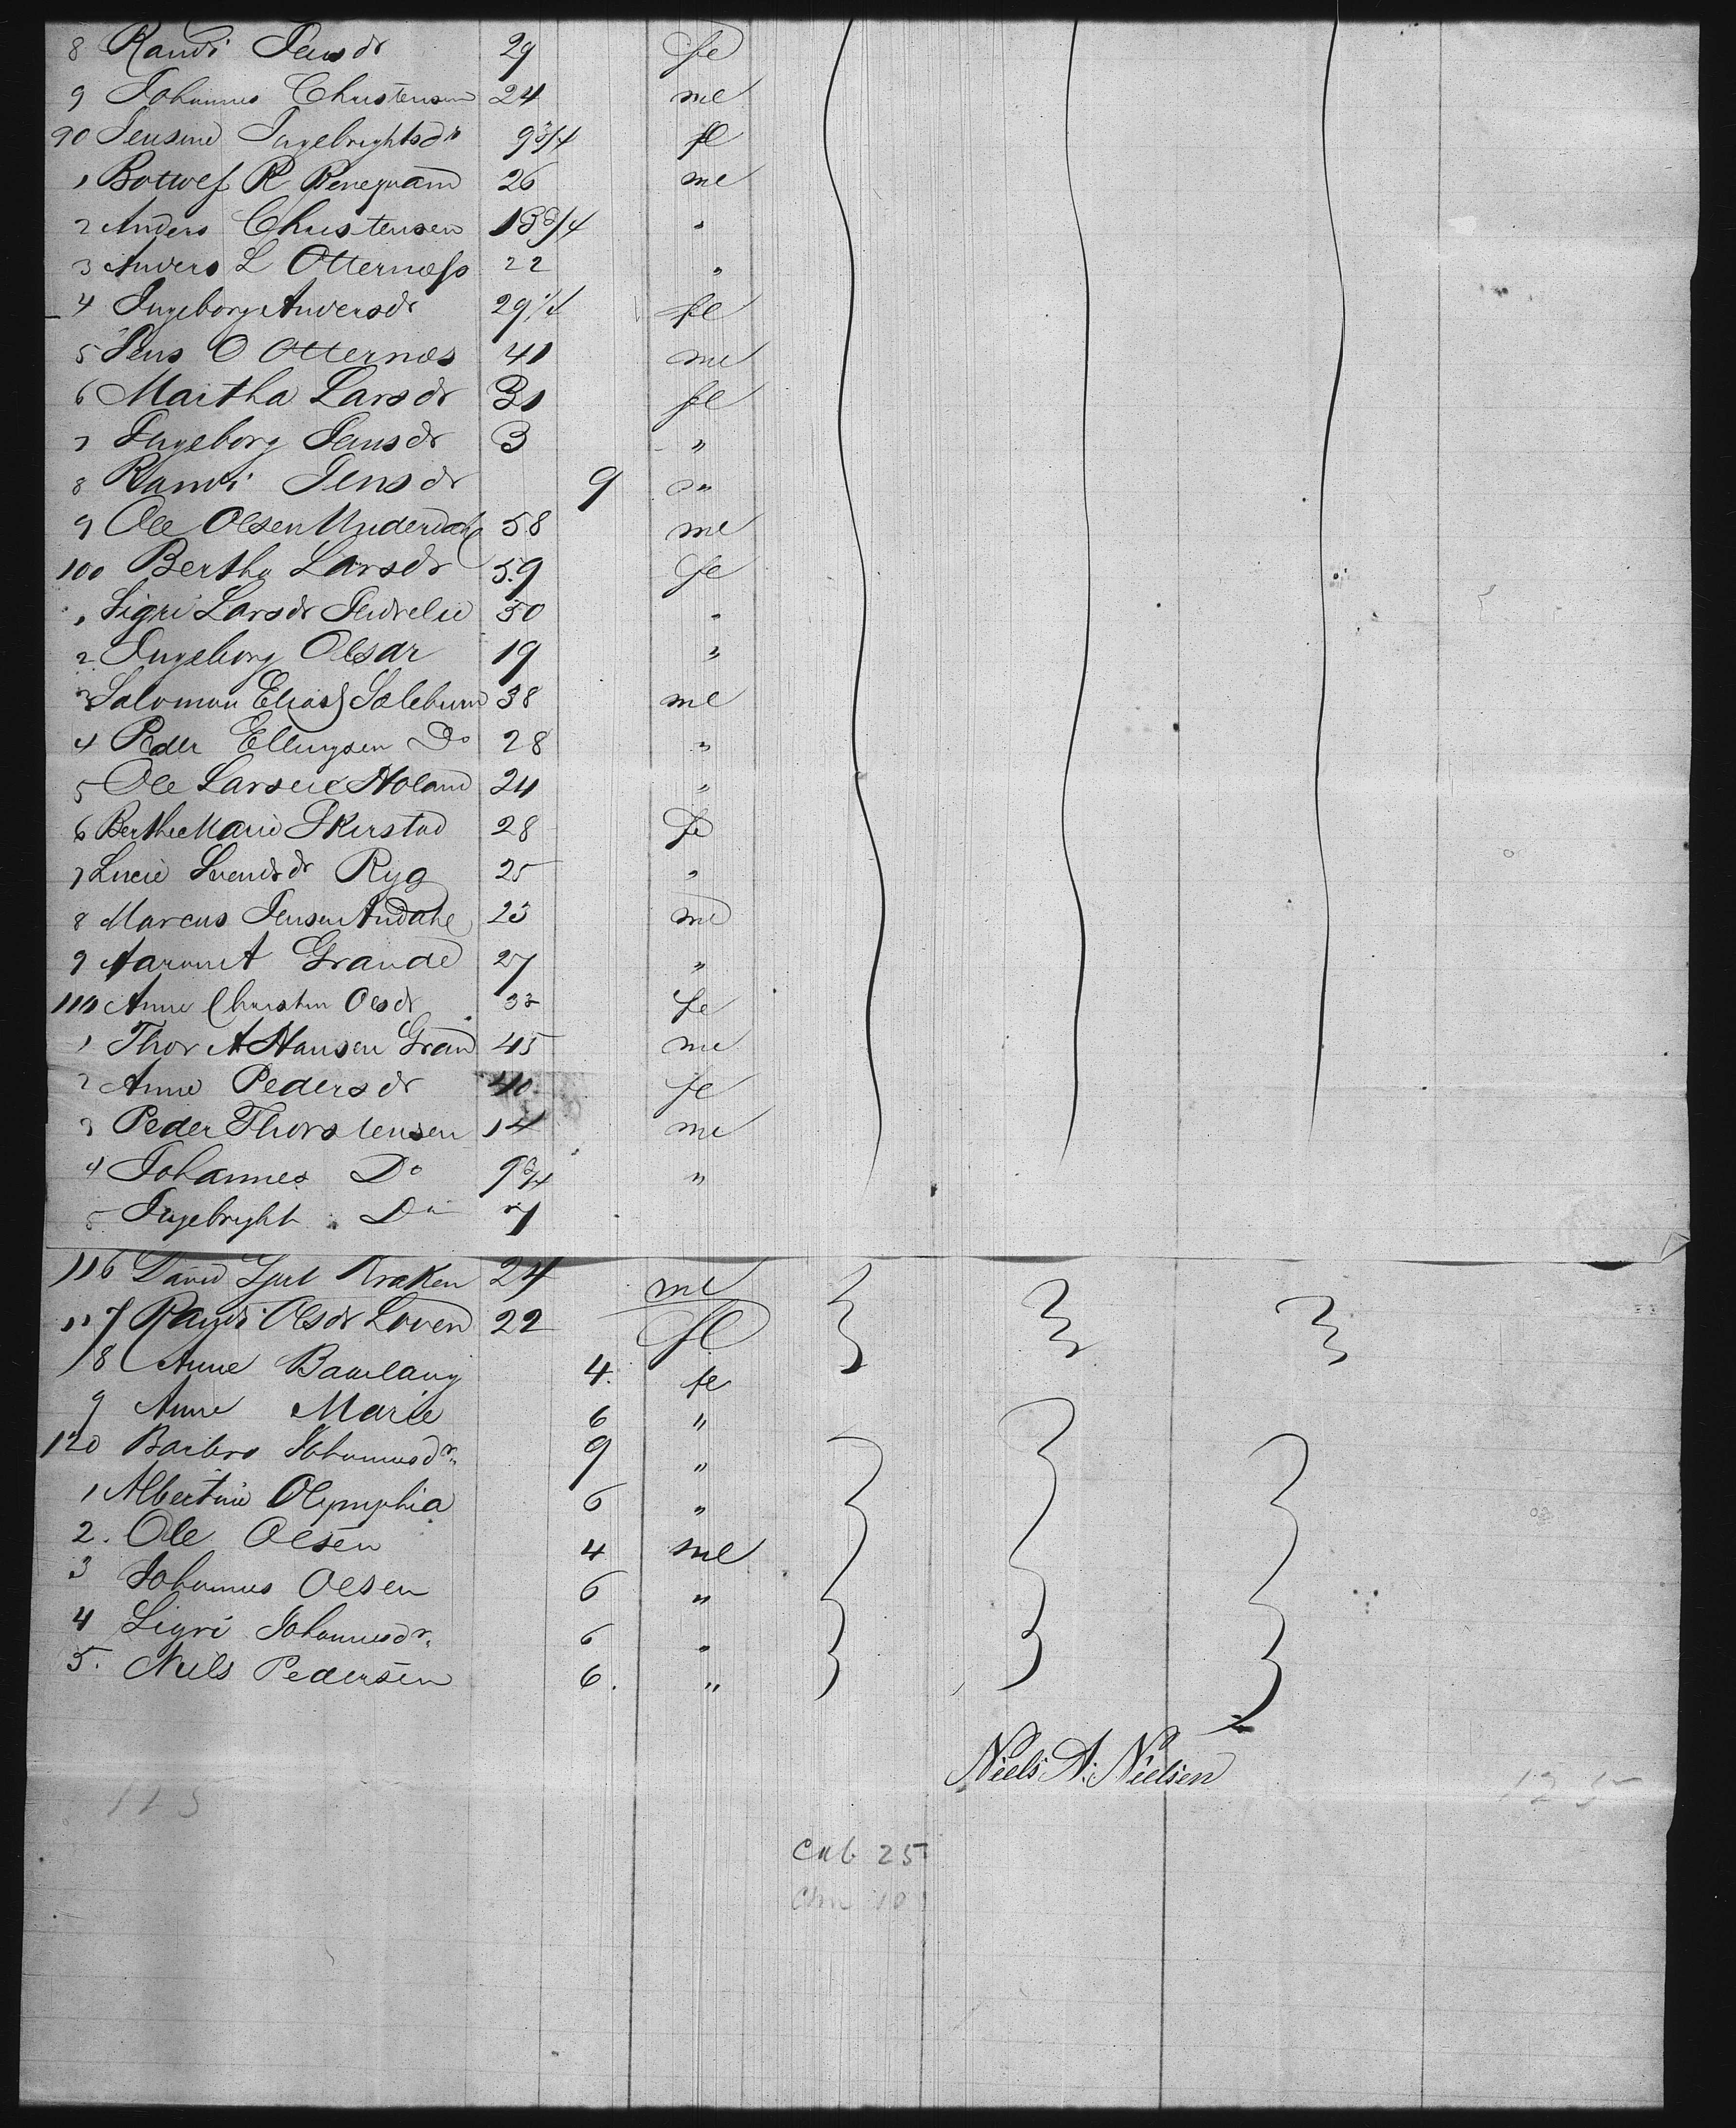 8 Randi Jensdr 29 fe
9 Johannes Christensen 24 me
90 Jensine Ingebrightsdr 9 3/4 fe
1 Bottolf R 26 me
2 Anders Christensen 13 3/4 "
3 Anders L Otternæss 22 "
4 Ingeborg Andersdr 29 1/4 fe
5 Jens O Otternæs 41 me
6 Martha Larsdr 31 fe
7 Ingeborg Jensdr 3 "
8 Randi Jensdr 9 "
9 Ole Olsen Underdahl 58 me
100 Bertha Larsdr 59 fe
1 Sigri Larsdr 50 "
2 Ingeborg Olsdr 19 "
3 Salomon Elias 38 me
4 Peder Ellingsen Do 28 "
5 Ole Larsen Holand 24 "
6 Berthe Marie Skirstad 28 fe
7 Lucie Svendsdr Ryg 25 "
8 Marcus Jensen Andahl 23 me
9 A Grande 27 "
110 Anne Christin Olsdr 32 fe
1 Thor A Hansen Gran 45 me
2 Anne Pedersdr 40 fe
3 Peder Thorstensen 14 me
4 Johannes Do 9 3/4 "
5 Ingebright Do 7
116 David Kraken 24 me
117 Randi Olsdr Loven 22 fe
18 Anne 4. fe
9 Anne Marie 6 "
120 Barbro Johannesdr. 9 "
1 Albertine Olymphia 6 "
2. Ole Olsen 4 me
3 Johannes Olsen 6 "
4 Sigri Johannesdr. 6 "
5. Niels Pedersen 6. "
Niels A: Nielsen
125 125
Cub 25
101